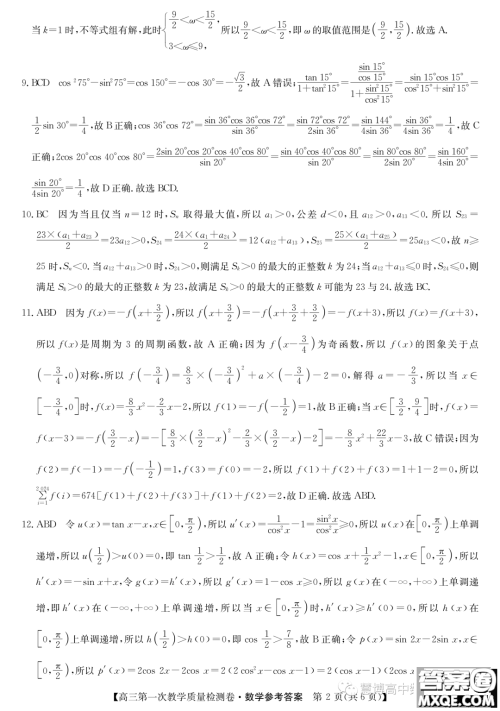 当 k=1 时,不等式组有解,此时{9/2<ω<15/2, 3<ω≤9, 所以 9/2<ω<15/2,即 ω 的取值范围是(9/2, 15/2). 故选 A.
9. BCD cos²75°−sin²75°=cos 150°=−cos 30°=−√3/2,故 A 错误; tan 15°/(1+tan²15°)=(sin 15°/cos 15°)/(1+sin²15°/cos²15°)=sin 15°cos 15°/(cos²15°+sin²15°)=
1/2 sin 30°=1/4,故 B 正确;cos 36°cos 72°=sin 36°cos 36°cos 72°/sin 36°=sin 72°cos 72°/2sin 36°=sin 144°/4sin 36°=sin 36°/4sin 36°=1/4,故 C
正确;2cos 20°cos 40°cos 80°=2sin 20°cos 20°cos 40°cos 80°/sin 20°=sin 40°cos 40°cos 80°/sin 20°=sin 80°cos 80°/2sin 20°=sin 160°/4sin 20°=
sin 20°/4sin 20°=1/4,故 D 正确. 故选 BCD.
10. BC 因为当且仅当 n=12 时,Sₙ 取得最大值,所以 a₁>0,公差 d<0,且 a₁₂>0,a₁₃<0. 所以 S₂₃=
23×(a₁+a₂₃)/2=23a₁₂>0,S₂₄=24×(a₁+a₂₄)/2=12(a₁₂+a₁₃),S₂₅=25×(a₁+a₂₅)/2=25a₁₃<0,故 n≥
25 时,Sₙ<0. 当 a₁₂+a₁₃>0 时,S₂₄>0,则满足 Sₖ>0 的最大的正整数 k 为 24;当 a₁₂+a₁₃≤0 时,S₂₄≤0,则
满足 Sₖ>0 的最大的正整数 k 为 23,故满足 Sₖ>0 的最大的正整数 k 可能为 23 与 24. 故选 BC.
11. ABD 因为 f(x)=−f(x+3/2),所以 f(x+3/2)=−f(x+3/2+3/2)=−f(x+3),所以 f(x)=f(x+3),
所以 f(x)是周期为 3 的周期函数,故 A 正确;因为 f(x−3/4)为奇函数,所以 f(x)的图象关于点
(−3/4,0)对称,所以 f(−3/4)=8/3×(−3/4)²+a×(−3/4)−2=0,解得 a=−2/3,所以当 x∈
[−3/4,0]时,f(x)=8/3x²−2/3x−2,所以 f(1)=−f(−1/2)=1,故 B 正确;当 x∈[3/2,9/4]时,f(x)=
f(x−3)=−f(3/2−x)=−[8/3×(3/2−x)²−2/3×(3/2−x)−2]=−8/3x²+22/3x−3,故 C 错误;因为
f(2)=f(−1)=−f(−1/2)=1,f(3)=f(0)=−2,所以 f(1)+f(2)+f(3)=1+1−2=0,所以
∑f(i)=674[f(1)+f(2)+f(3)]+f(1)+f(2)=2,故 D 正确. 故选 ABD.
12. ABD 令 u(x)=tan x−x,x∈[0,π/2),所以 u′(x)=1/cos²x−1=sin²x/cos²x≥0,所以 u(x)在[0,π/2)上单调
递增,所以 u(1/2)>u(0)=0,即 tan 1/2>1/2,故 A 正确;令 h(x)=cos x+1/2x²−1,x∈[0,π/2),所以
h′(x)=−sin x+x,令 g(x)=h′(x),所以 g′(x)=1−cos x≥0,所以 g(x)在(−∞,+∞)上单调递
增,即 h′(x)在(−∞,+∞)上单调递增,所以当 x∈[0,π/2)时,h′(x)≥h′(0)=0,所以 h(x)在
[0,π/2)上单调递增,所以 h(1/2)>h(0)=0,即 cos 1/2>7/8,故 B 正确;令 p(x)=sin 2x−2sin x,x∈
[0,π/2),所以 p′(x)=2cos 2x−2cos x=2(2cos²x−cos x−1)=2(cos x−1)(2cos x
【高三第一次教学质量检测卷·数学参考答案 第 2 页(共 6 页)】
答案圈
MXQE.COM